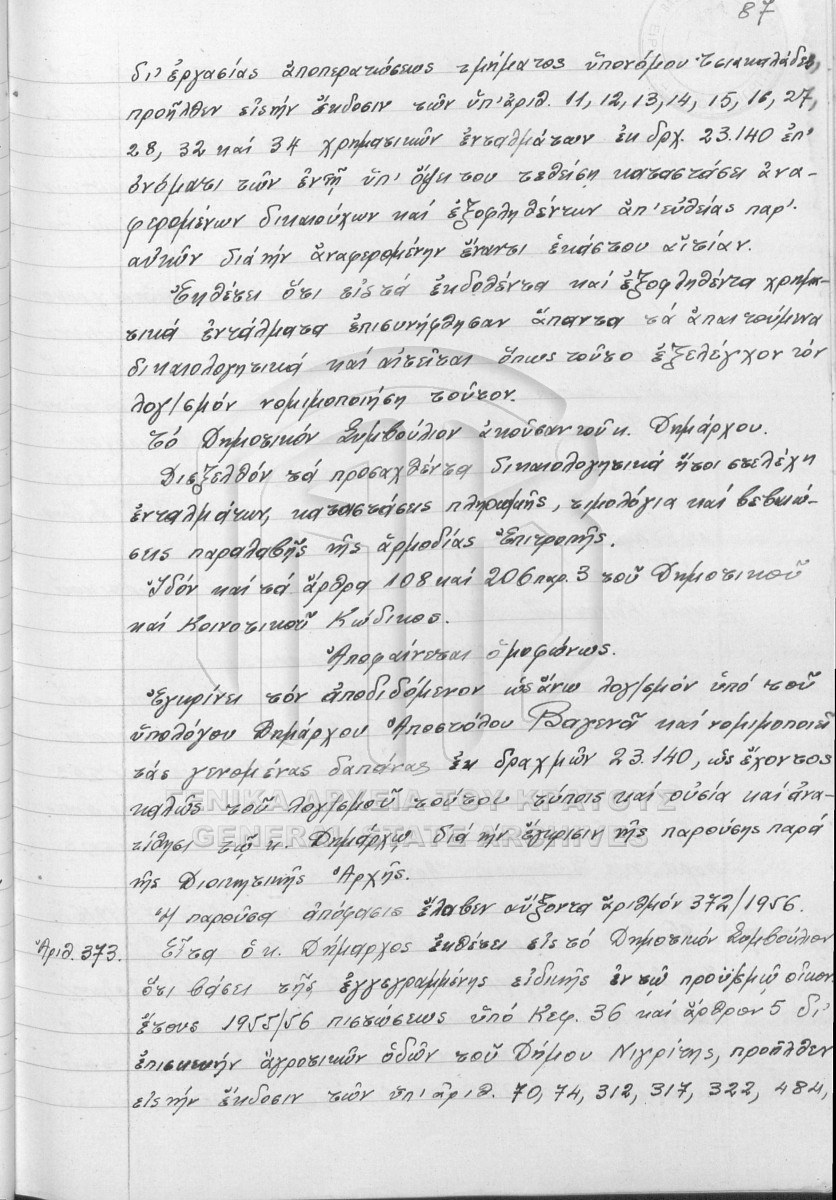 87
δι' ἐργασίας ἀποπερατώσεως τμήματος ὑπονόμου Τσιακαλάδες,
προῆλθεν εἰς τήν ἔκδοσιν τῶν ὑπ' ἀριθ. 11, 12, 13, 14, 15, 16, 27,
28, 32 καί 34 χρηματικῶν ἐνταλμάτων ἐκ δρχ. 23.140 ἐπ'
ὀνόματι τῶν ἐν τῇ ὑπ' ὄψει του τεθείσῃ καταστάσει ἀνα-
φερομένων δικαιούχων καί ἐξοφληθέντων ἀπ' εὐθείας παρ'
αὐτῶν διά τήν ἀναφερομένην ἔναντι ἑκάστου αἰτίαν.
Ἐκθέτει ὅτι εἰς τά ἐκδοθέντα καί ἐξοφληθέντα χρημα-
τικά ἐντάλματα ἐπισυνήφθησαν ἅπαντα τά ἀπαιτούμενα
δικαιολογητικά καί αἰτεῖται ὅπως τοῦτο ἐξελέγχον τόν
λογ/σμόν νομιμοποιήση τοῦτον.
Τό Δημοτικόν Συμβούλιον ἀκοῦσαν τοῦ κ. Δημάρχου.
Διεξελθόν τά προσαχθέντα δικαιολογητικά ἤτοι στελέχη
ἐνταλμάτων, καταστάσεις πληρωμῆς, τιμολόγια καί βεβαιώ-
σεις παραλαβῆς τῆς ἁρμοδίας Ἐπιτροπῆς.
Ἰδόν καί τά ἄρθρα 108 καί 206 παρ. 3 τοῦ Δημοτικοῦ
καί Κοινοτικοῦ Κώδικος.
Ἀποφαίνεται ὁμοφώνως.
Ἐγκρίνει τόν ἀποδιδόμενον ὡς ἄνω λογ/σμόν ὑπό τοῦ
ὑπολόγου Δημάρχου Ἀποστόλου Βαγενᾶ καί νομιμοποιεῖ
τάς γενομένας δαπάνας ἐκ δραχμῶν 23.140, ὡς ἔχοντος
καλῶς τοῦ λογ/σμοῦ τούτου τύποις καί οὐσία καί ἀνα-
τίθησι τῷ κ. Δημάρχῳ διά τήν ἔγκρισιν τῆς παρούσης παρά
τῆς Διοικητικῆς Ἀρχῆς.
Ἡ παροῦσα ἀπόφασις ἔλαβεν αὔξοντα ἀριθμόν 372/1956.
Ἀριθ. 373. Εἶτα ὁ κ. Δήμαρχος ἐκθέτει εἰς τό Δημοτικόν Συμβούλιον
ὅτι βάσει τῆς ἐγγεγραμμένης εἰδικῆς ἐν τῷ προϋ/σμῷ οἰκον.
ἔτους 1955/56 πιστώσεως ὑπό Κεφ. 36 καί ἄρθρον 5 δι'
ἐπισκευήν ἀγροτικῶν ὁδῶν τοῦ Δήμου Νιγρίτης, προῆλθεν
εἰς τήν ἔκδοσιν τῶν ὑπ' ἀριθ. 70, 74, 312, 317, 322, 484,
ΓΕΝΙΚΑ ΑΡΧΕΙΑ ΤΟΥ ΚΡΑΤΟΥΣ
GENERAL STATE ARCHIVES